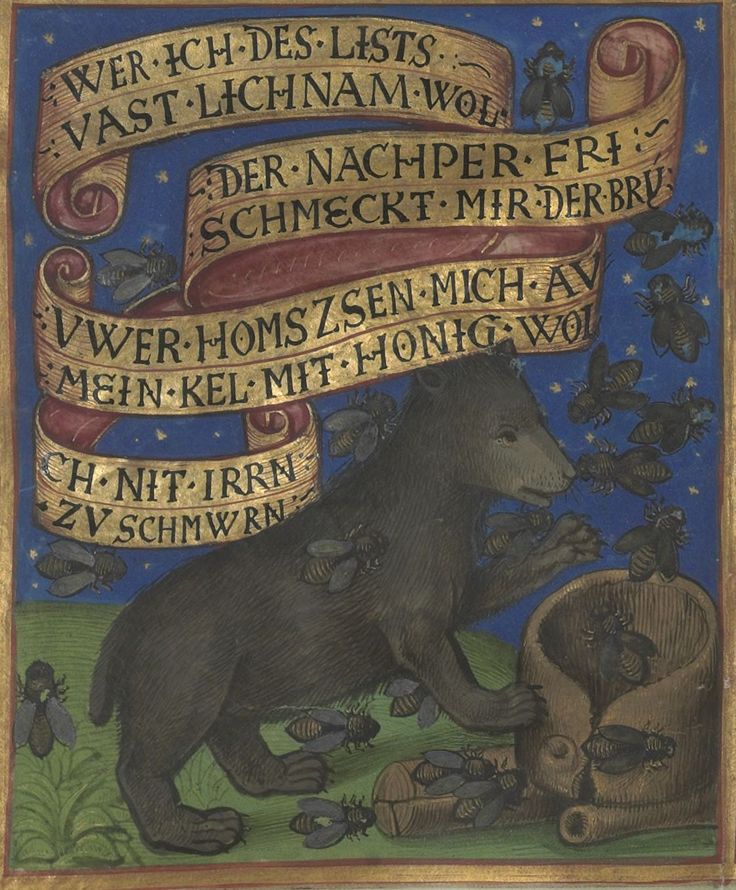 WER·ICH·DES·LISTS
VAST·LICHNAM·WOL
DER·NACHPER·FRI
SCHMECKT·MIR·DER·BRÚ
VWER·HOMSZSEN·MICH·AV
MEIN·KEL·MIT·HONIG·WOL
CH·NIT·IRRN
ZV SCHMWRN